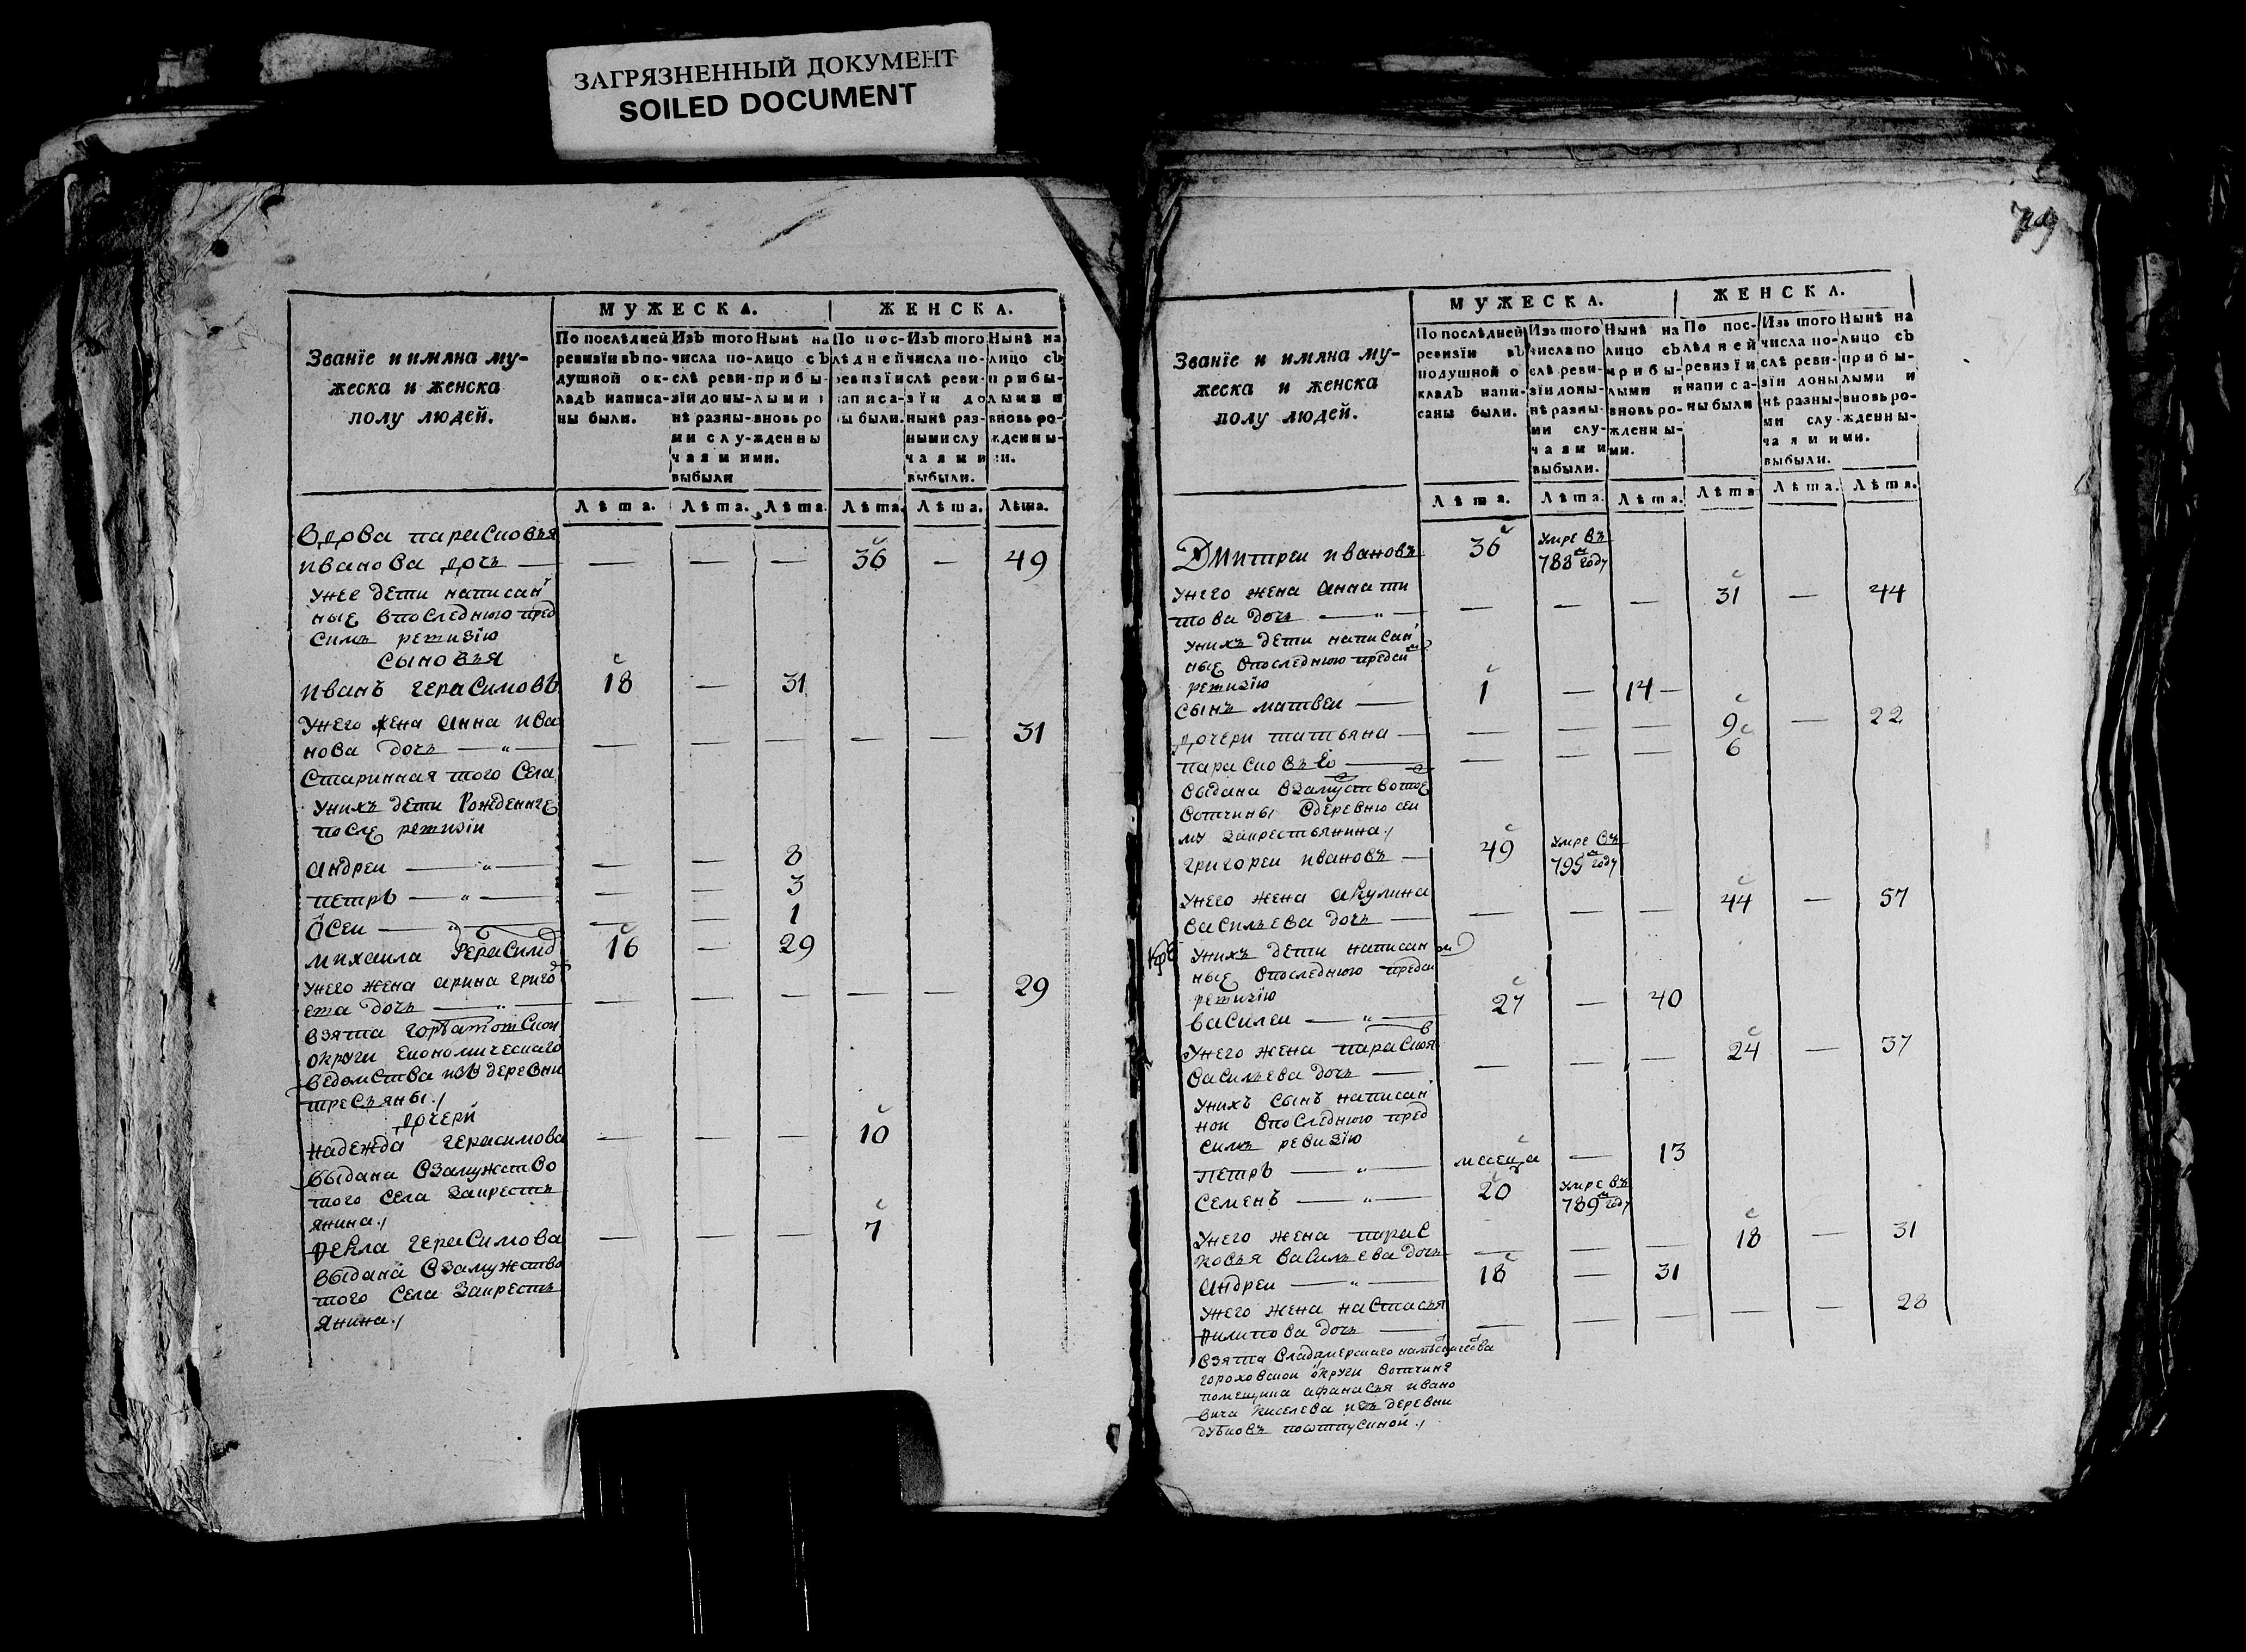 ЗАГРЯЗНЕННЫЙ ДОКУМЕНТ
SOILED DOCUMENT
Званїе и имяна му-
жеска и женска
полу людей.
МУЖЕСКА.
ЖЕНСКА.
По послѣдней
ревизїи въ по-
душной ок-
ладъ написа-
ны были.
Изъ того
числа по-
слѣ реви-
зїи доны-
нѣ разны-
ми слу-
чаями
выбыли
Нынѣ на
лицо съ
прибы-
лыми и
вновь ро
жденны
ми.
По пос-
лѣдней
ревизїи
написа-
ны были.
Изъ того
числа по-
слѣ реви-
зїи до
нынѣ раз-
ными слу
чаями
выбыли.
Нынѣ на
лицо съ
прибы-
лыми и
вновь ро-
жденны-
ми.
Лѣта. Лѣта. Лѣта. Лѣта. Лѣта. Лѣта.
Вдова парасковья
иванова дочь — — — — 36 — 49
унее дети написан
ные впоследнюю пред
симъ ревизїю
сыновья
иванъ герасимовъ 18 — 31
унего жена анна ива
нова дочь — — — — — — 31
Старинная того села
унихъ дети рожденные
после ревизїи
андреи — — — 8
петръ — — — 3
осеи — — — 1
михаила герасимо 16 — 29
унего жена арина григо
ева дочь — — — — — — 29
взята горбатовскои
округи економическаго
ведомства изъ деревни
тресьяны
дочери
надежда герасимова — — — 10
выдана взамужство
того села закресть
янина
Фекла герасимова — — — 7
выдана взамужство
того села закресть
янина
Званїе и имяна му-
жеска и женска
полу людей.
МУЖЕСКА.
ЖЕНСКА.
По послѣдней
ревизїи въ
подушной о
кладъ напи-
саны были.
Изъ того
числа по
слѣ реви-
зїи доны-
нѣ разны-
ми слу-
чаями
выбыли.
Нынѣ на
лицо съ
прибы-
лыми и
вновь ро-
жденны-
ми.
По пос-
лѣдней
ревизїи
написа-
ны были
Изъ того
числа по-
слѣ реви-
зїи доны
нѣ разны-
ми слу-
чаями
выбыли.
Нынѣ на
лицо съ
прибы-
лыми и
вновь ро-
жденны-
ми.
Лѣта. Лѣта. Лѣта. Лѣта Лѣта. Лѣта.
Дмитреи ивановъ 36 умре въ
788м году
унего жена анна ти
това дочь — — — — 31 — 44
унихъ дети написан
ные впоследнюю предси
ревизїю
сынъ матвеи — 1 — 14 —
дочери татьяна — — — — 9 — 22
парасковья — — — — 6
выдана взамуство тое
вотчины вдеревню
закрестьянина
григореи ивановъ — 49 умре въ
795м году
унего жена акулина
васильева дочь — — — — 44 — 57
унихъ дети написан
ные впоследнюю предси
ревизїю
василеи — 27 — 40
унего жена парасков
васильева дочь — — — — 24 — 37
унихъ сынъ написан
нои впоследнюю пред
симъ ревизїю
петръ — месеца — 13
семенъ — 20 умре въ
789м году
унего жена парас
ковья васильева дочь — — — 18 — 31
андреи — 18 — 31
унего жена настасья
филипова дочь — — — — — — 28
взята владимерскаго наместничества
гороховскои округи вотчины
помещика афанасья ивано
вича киселева изъ деревни
дубковъ поотпускной